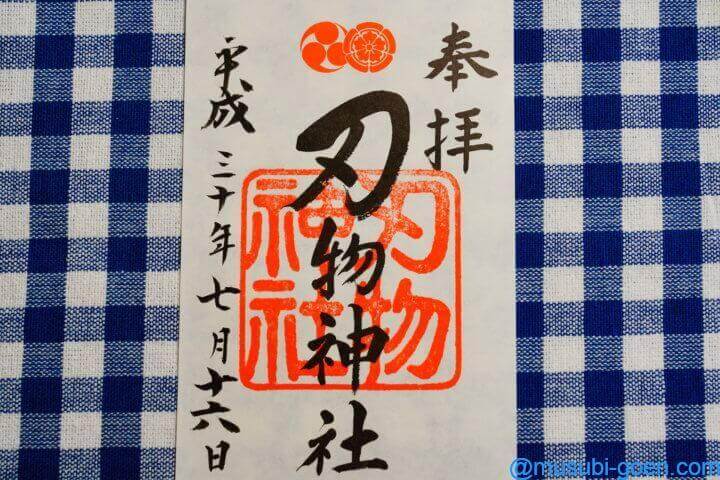 奉拝
刃物神社
刃物
神社
平成三十年七月十六日
@musubi-goen.com